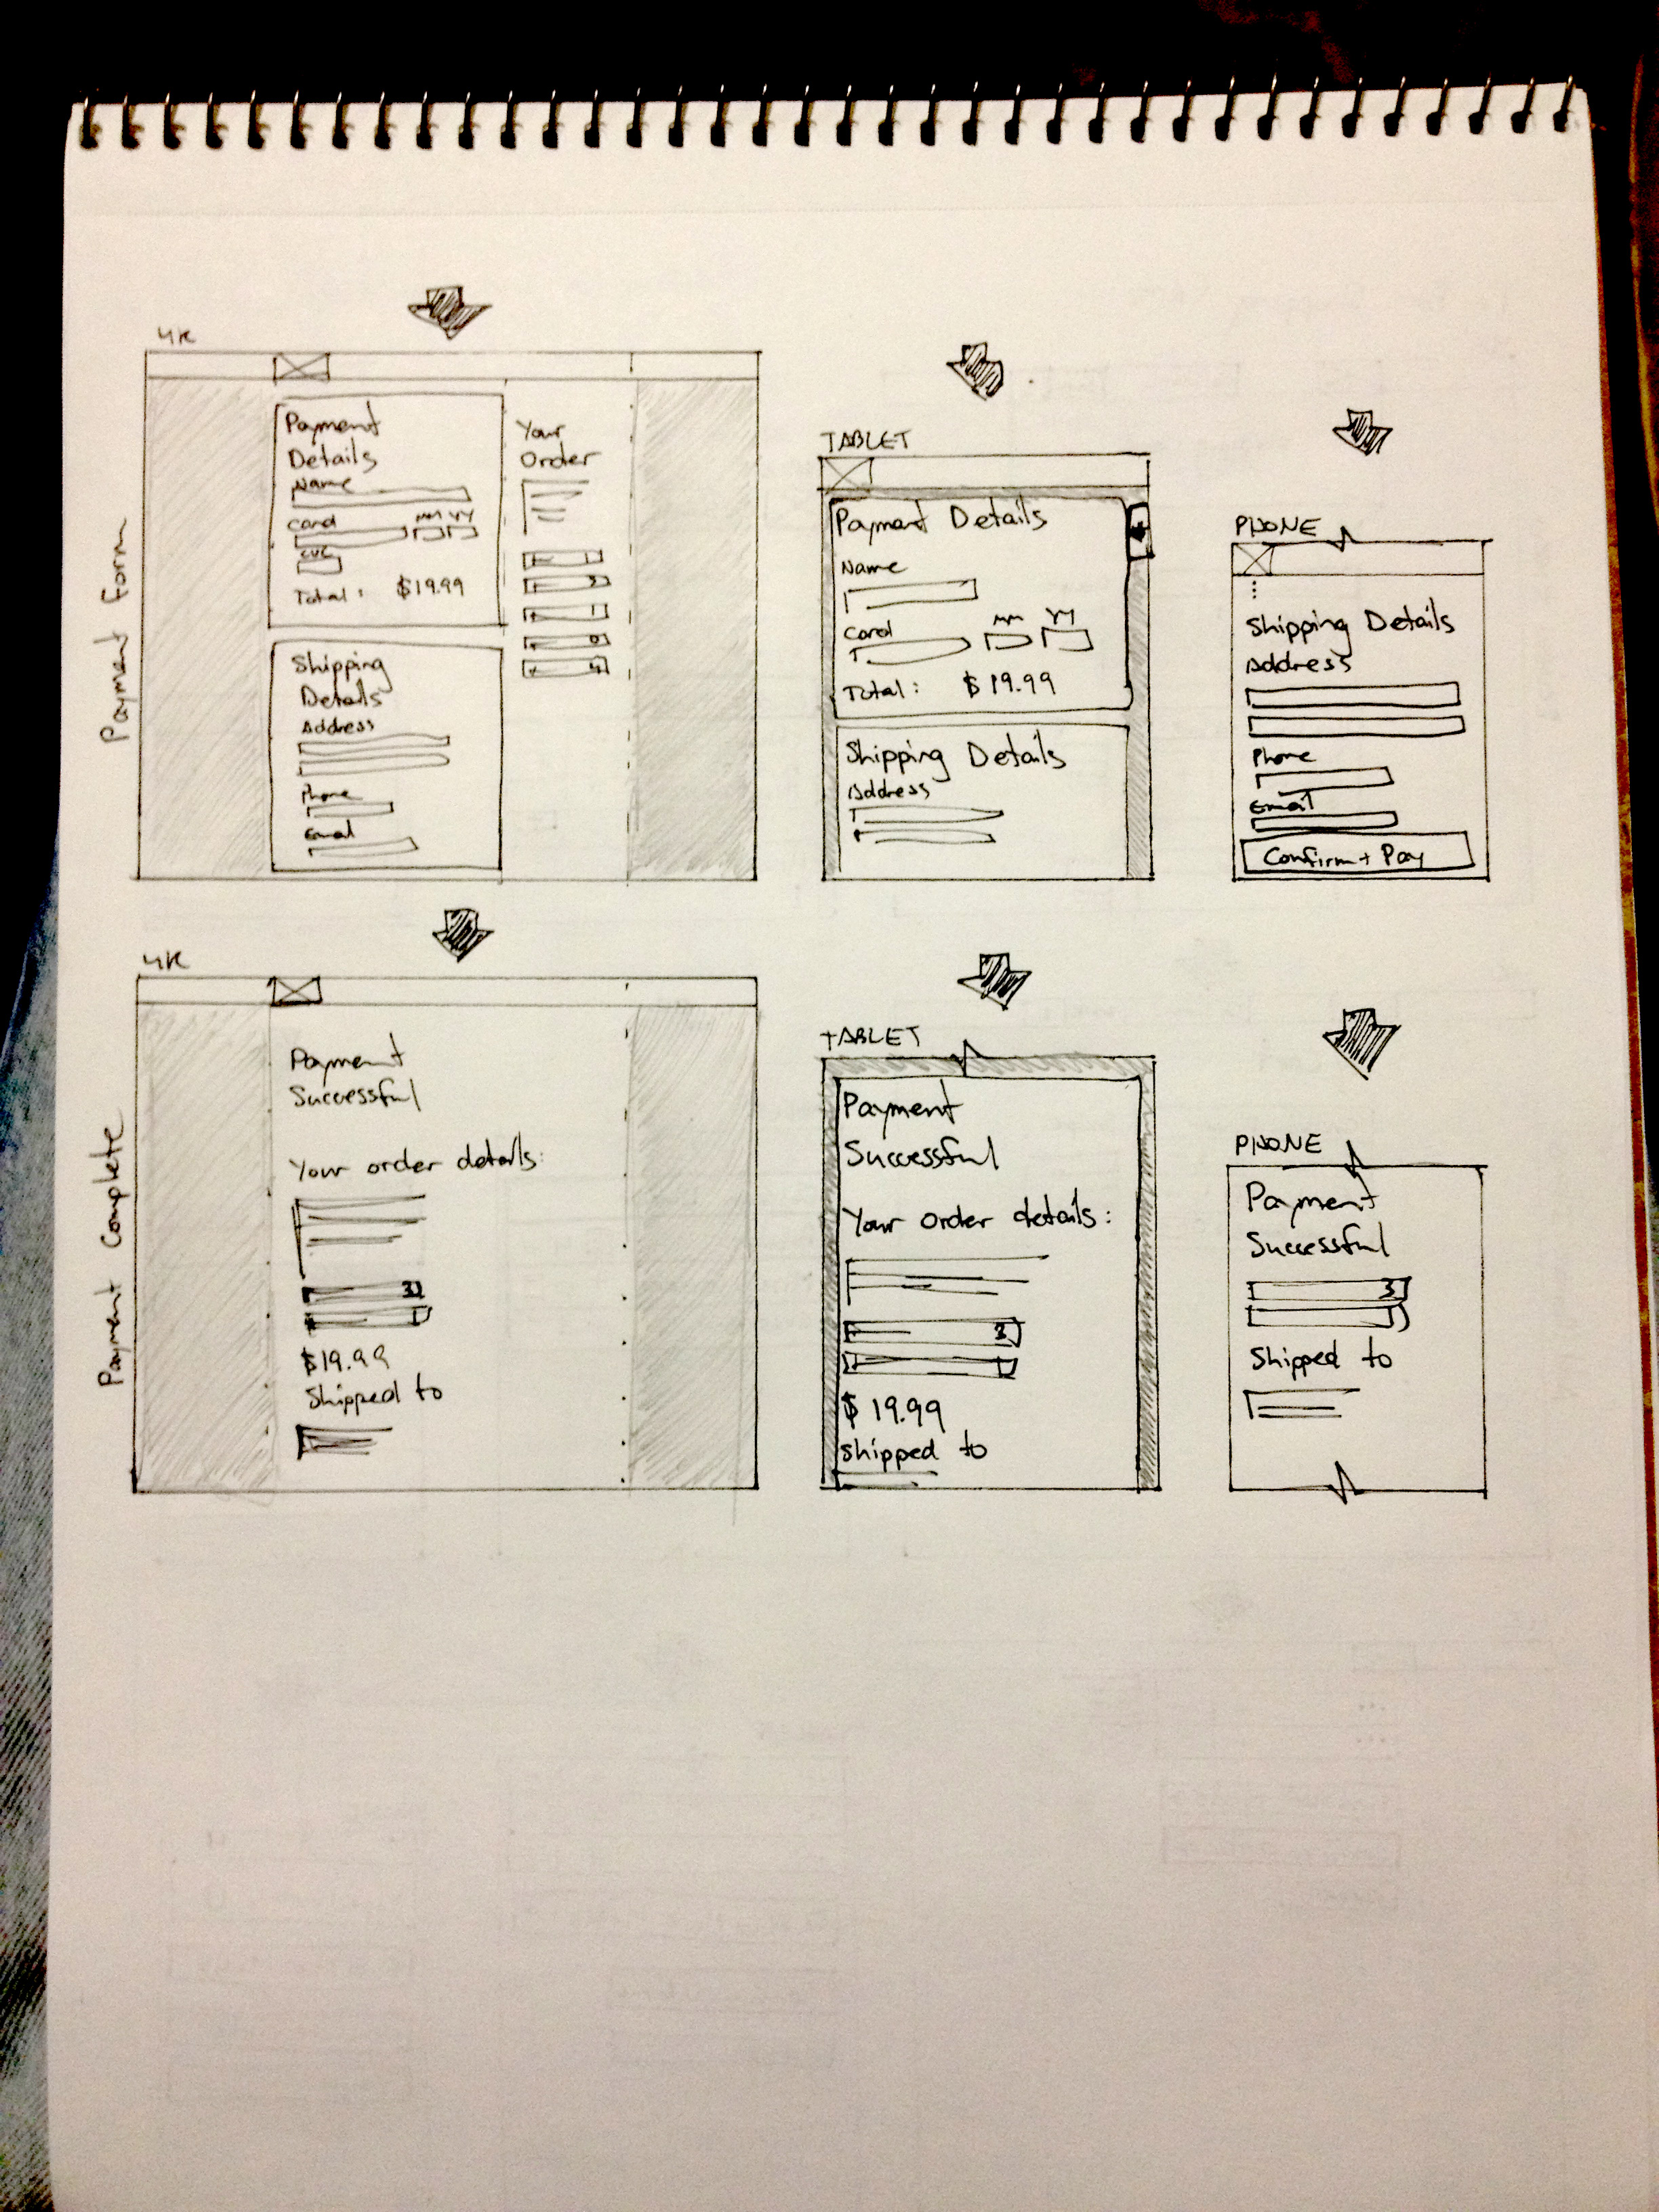 Payment Form
4K
Payment
Details
Name
Card MM YY
CVC
Total: $19.99
Shipping
Details
Address
Phone
Email
Your
Order
TABLET
Payment Details
Name
Card MM YY
Total: $19.99
Shipping Details
Address
PHONE
Shipping Details
Address
Phone
Email
Confirm + Pay
Payment Complete
4K
Payment
Successful
Your order details:
3
$19.99
Shipped to
TABLET
Payment
Successful
Your order details:
3
$19.99
Shipped to
PHONE
Payment
Successful
3
Shipped to